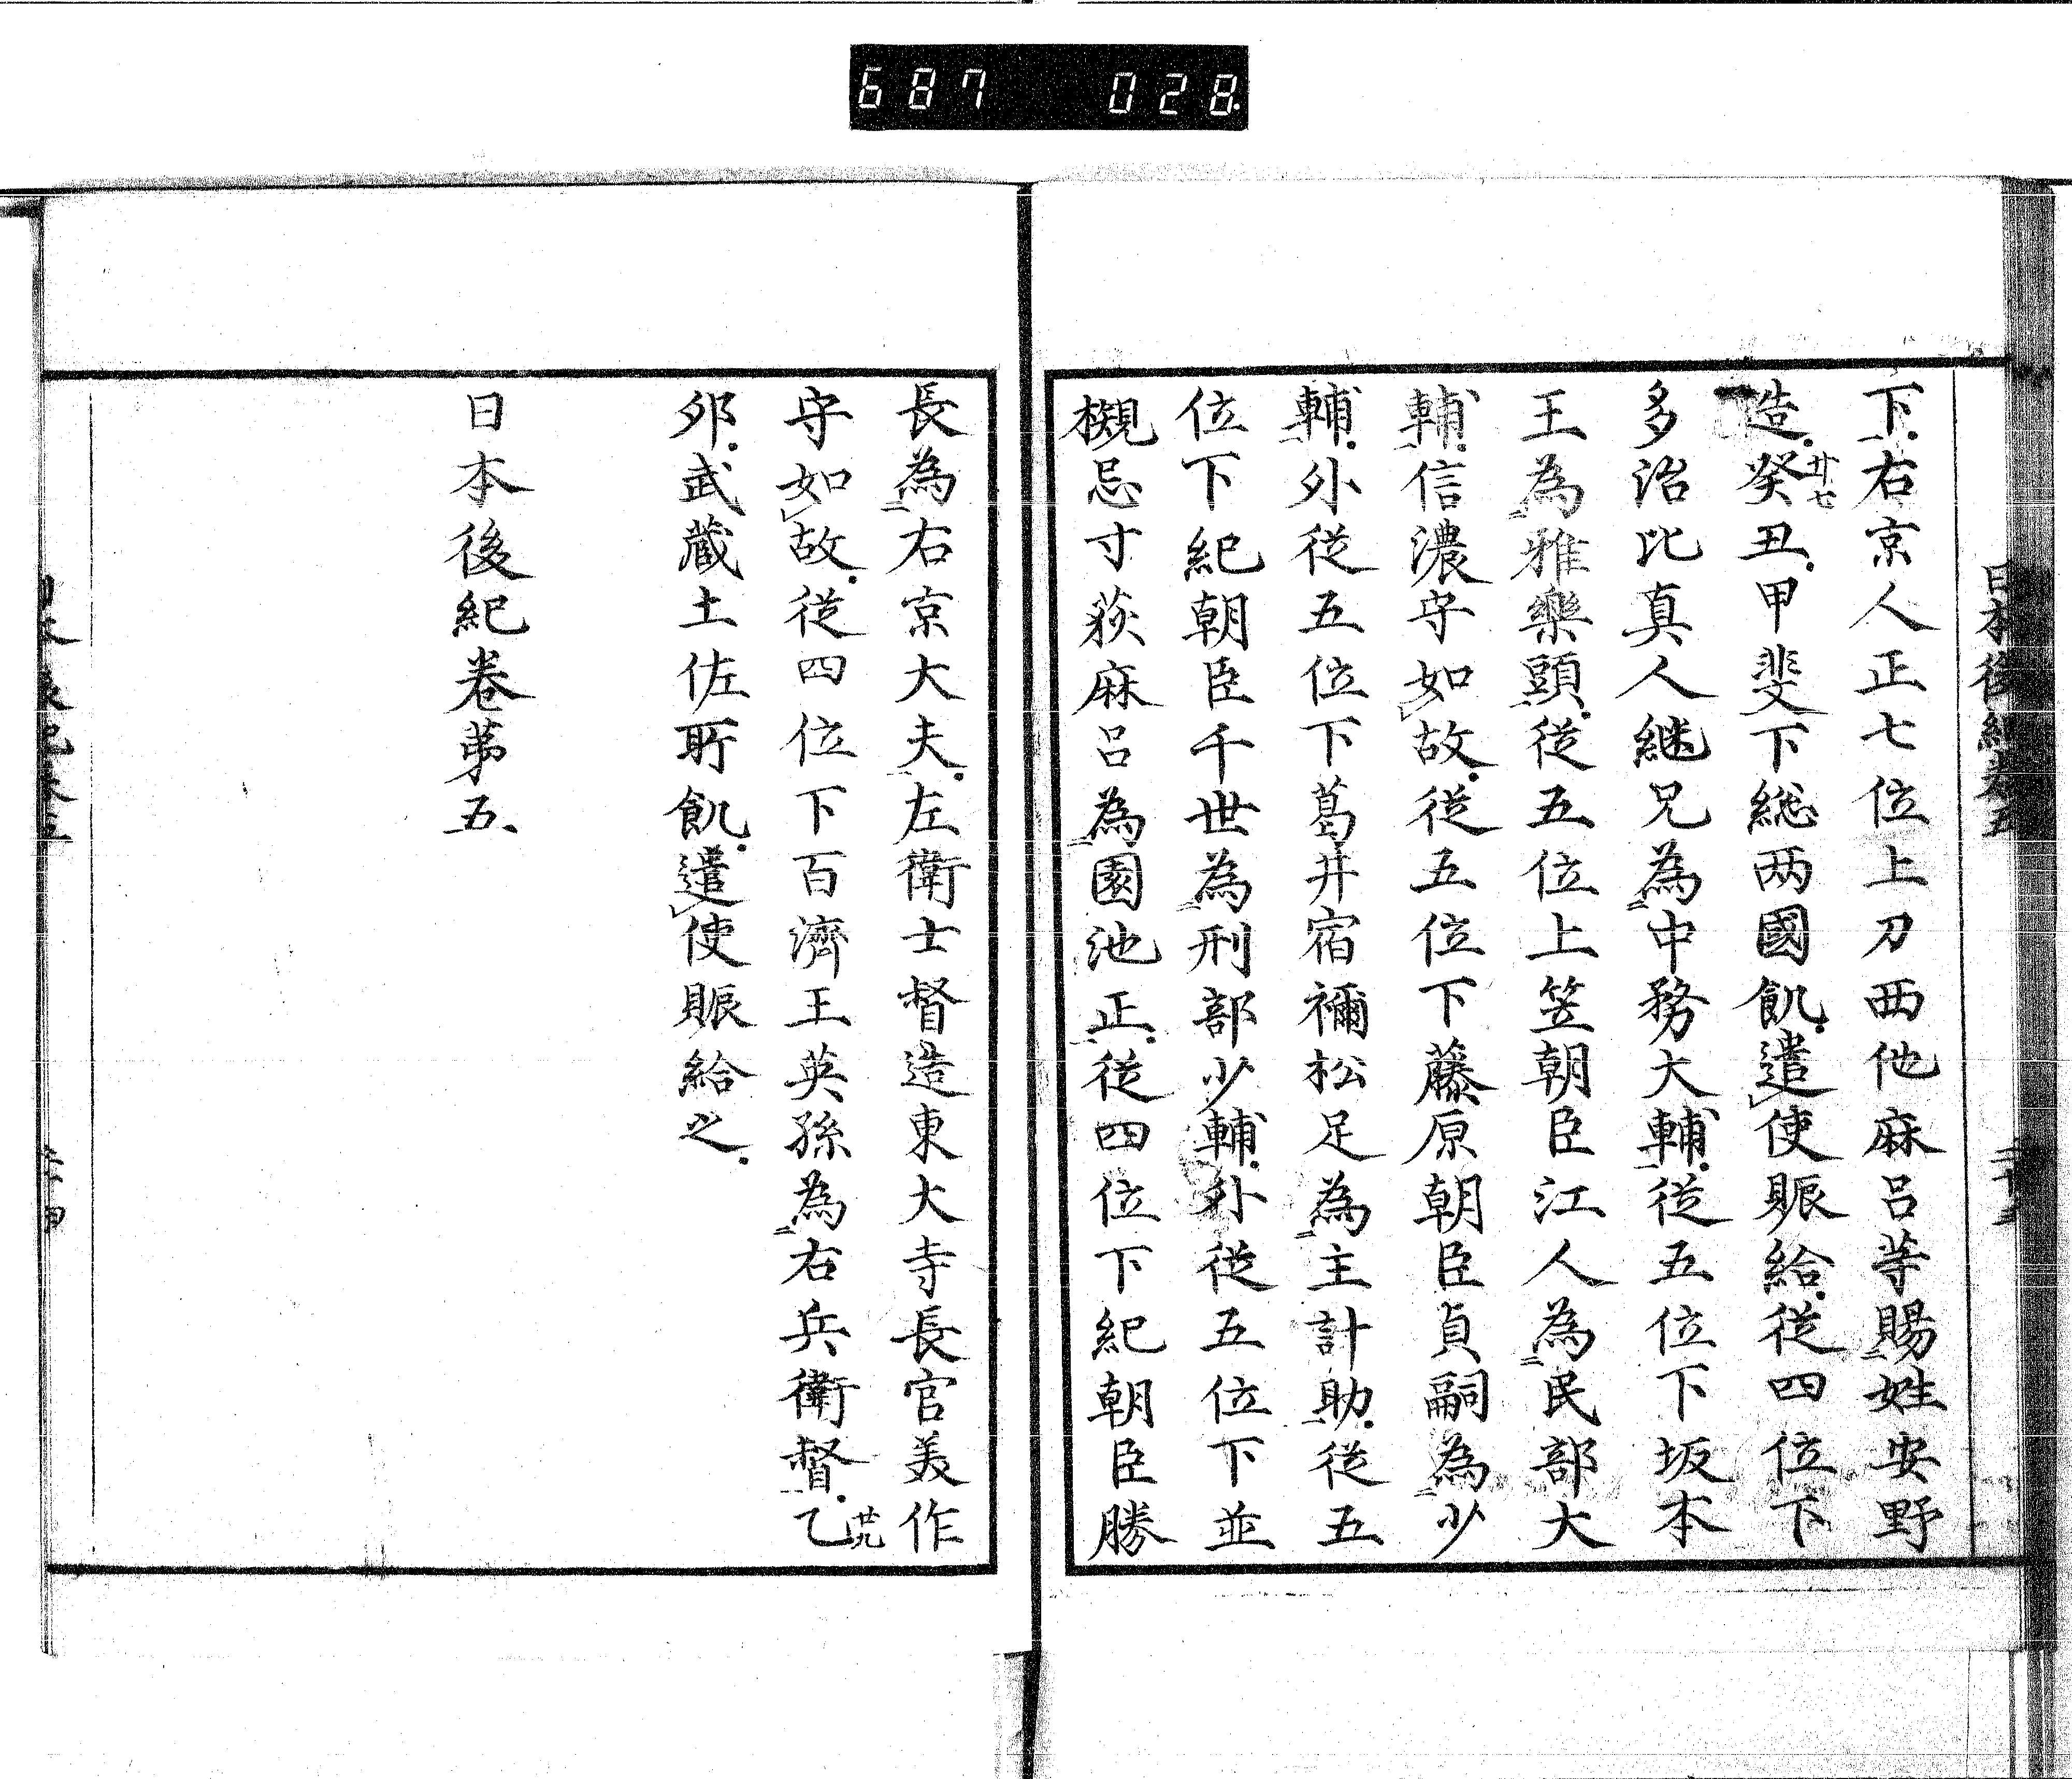 687 028
日本後紀卷五
下右京人正七位上刀西他麻呂等賜姓安野
造癸丑甲斐下総两國飢遣使賑給従四位下
廿七
多治比真人継兄為中務大輔従五位下坂本
王為雅樂頭従五位上笠朝臣江人為民部大
輔信濃守如故従五位下藤原朝臣貞嗣為少
輔外従五位下葛井宿禰松足為主計助従五
位下紀朝臣千世為刑部少輔外従五位下並
槻忌寸荻麻呂為園池正従四位下紀朝臣勝
長為右京大夫左衛士督造東大寺長官美作
守如故従四位下百濟王英孫為右兵衛督乙
廿九
夘武蔵土佐所飢遣使賑給之
日本後紀卷苐五